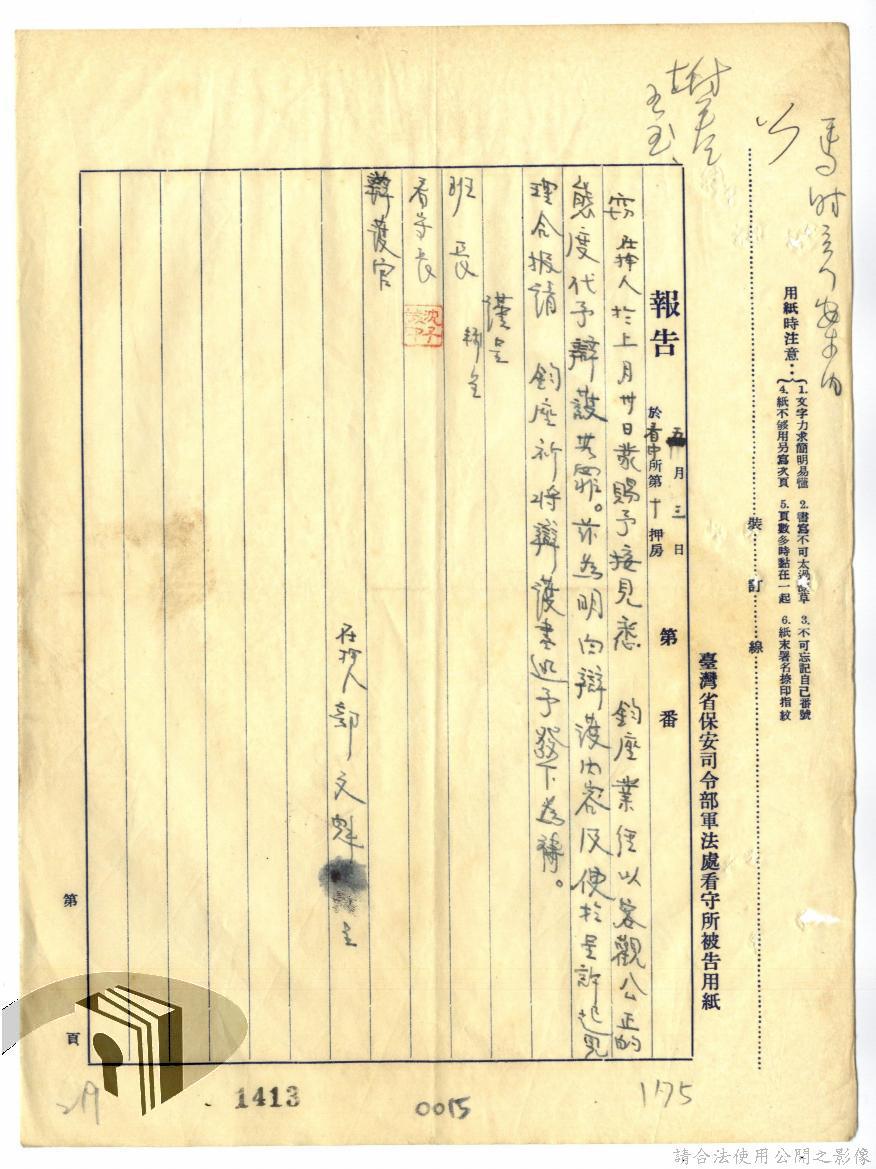 用紙時注意：
1.文字力求簡明易懂 2.書寫不可太過潦草 3.不可忘記自己番號
4.紙不够用另寫次頁 5.頁數多時黏在一起 6.紙末署名捺印指紋
裝訂線
臺灣省保安司令部軍法處看守所被告用紙
報告
五月三日
於看守所第十押房
第 番
窃在押人於上月卅日蒙賜予接見悉 鈞座業經以客觀公正的
態度代予辯護其罪。茲為明白辯護內容及便於呈訴起見
理合报請 鈞座祈將辯護書迅予發下為禱。
謹呈
班長 轉呈
看守長
辯護官
在押人 郭文魁 呈
第 頁
1413
0015
1175
請合法使用公開之影像